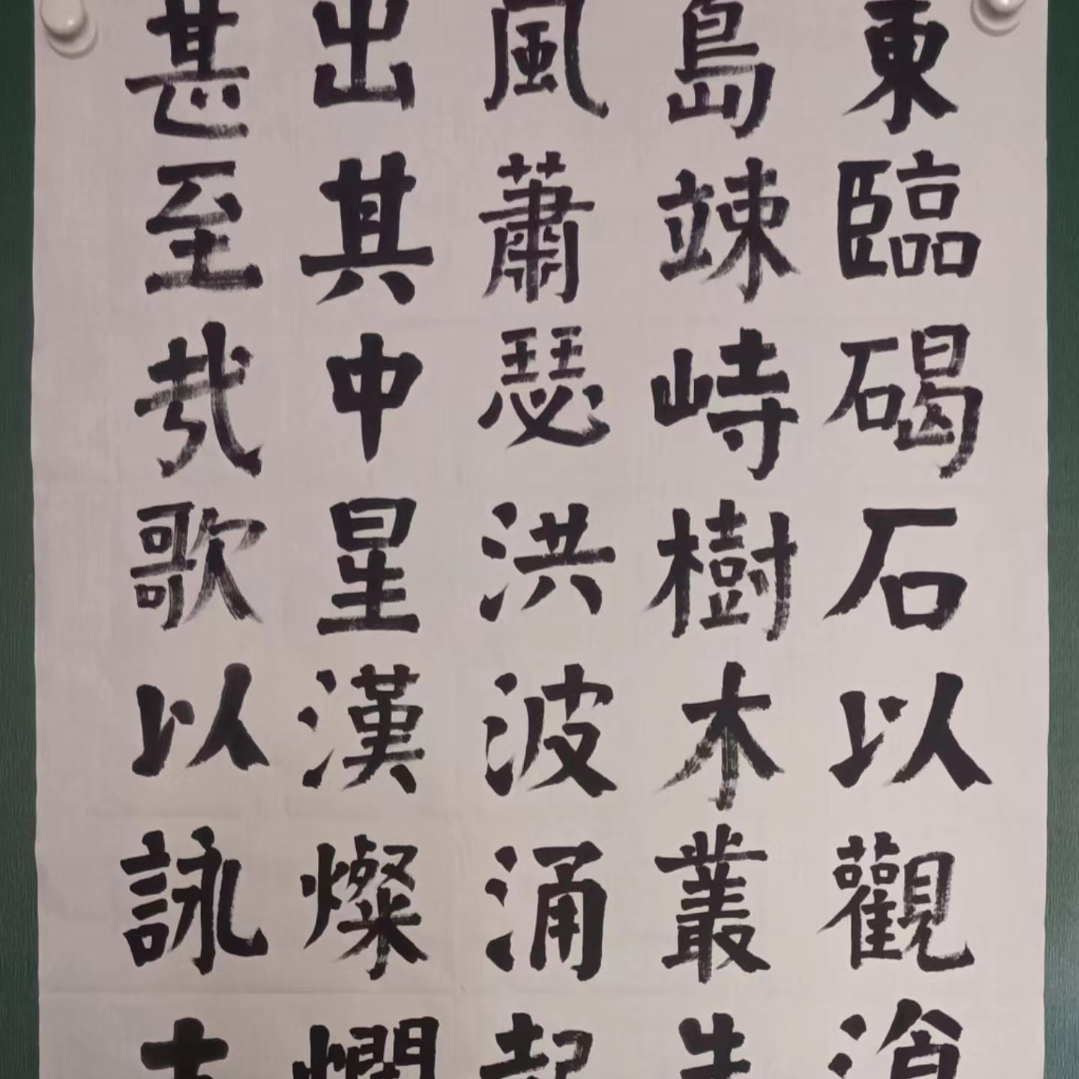 東臨碣石以觀滄
島竦峙樹木叢生
風蕭瑟洪波涌起
出其中星漢燦爛
甚至哉歌以詠志